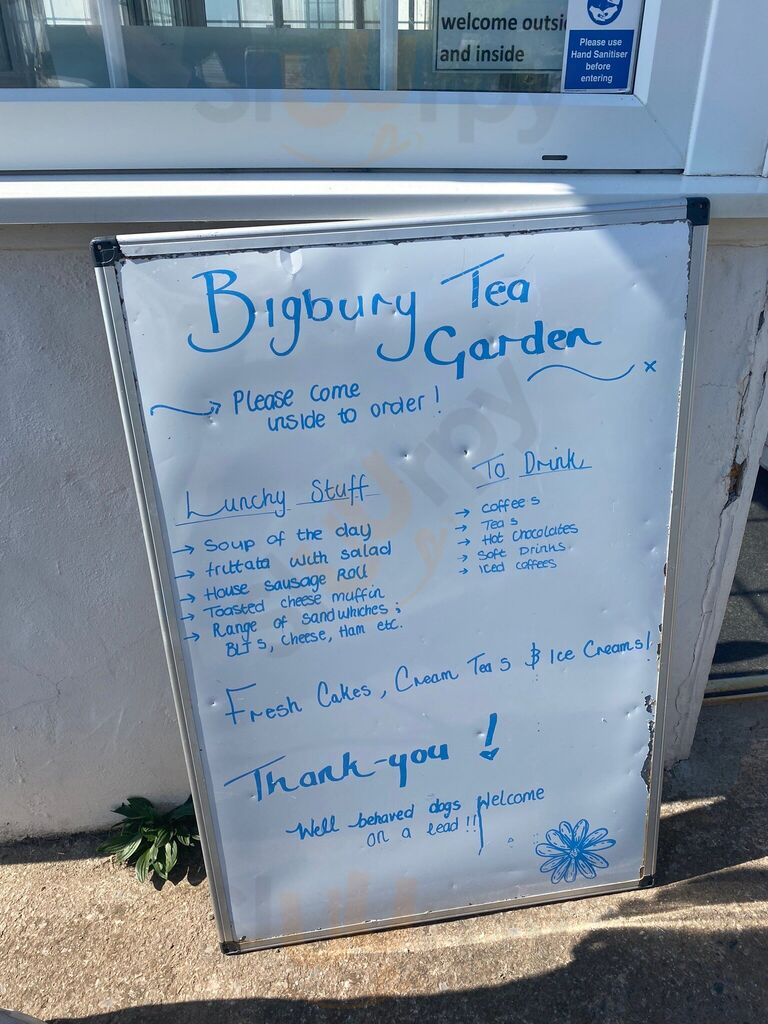 welcome outsi
and inside
Please use
Hand Sanitiser
before
entering
Bigbury Tea
Garden
Please come
inside to order!
Lunchy Stuff
→ Soup of the day
→ fruttata with salad
→ House sausage Roll
→ Toasted cheese muffin
→ Range of sandwhiches;
BLTs, Cheese, Ham etc.
To Drink
→ coffee s
→ Tea s
→ Hot Chocolates
→ Soft Drinks
→ Iced coffees
Fresh Cakes, Cream Tea s & Ice Creams!
Thank-you!
Well behaved dogs Welcome
on a lead!!
sluurpy
sluurpy